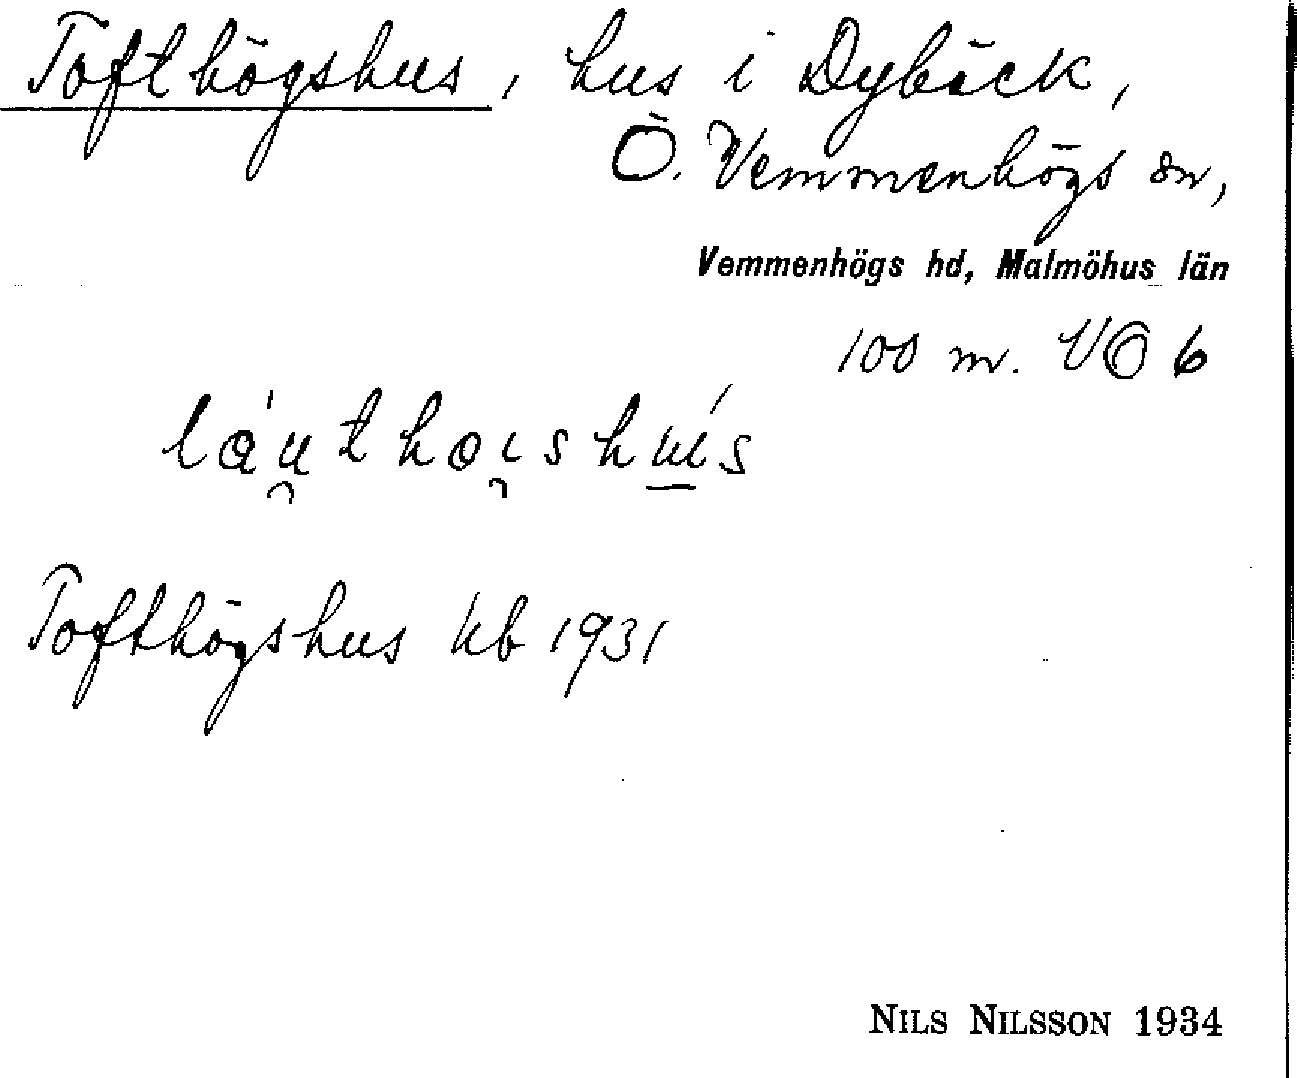 Tofthögshus, hus i Dybäck,
Ö. Vemmenhögs sn,
Vemmenhögs hd, Malmöhus län
100 m. VÖ 6
Tofthögshus kb 1931
NILS NILSSON 1934